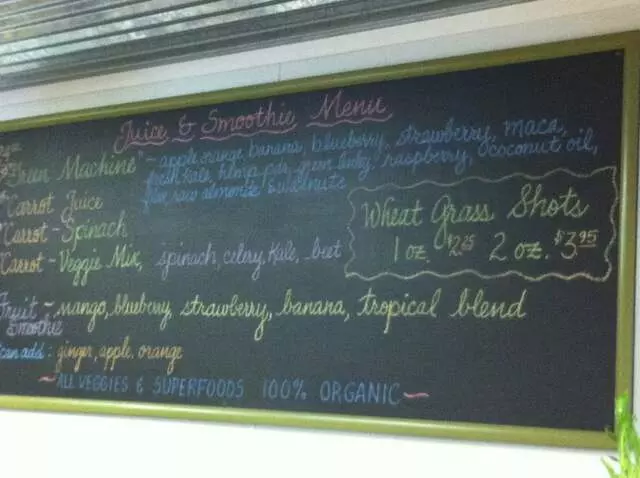 Juice & Smoothie Menu
Green Machine - apple, orange, banana, blueberry, strawberry, maca,
fresh kale, hemp pdr, raspberry, coconut oil,
raw almonds & walnuts
Carrot Juice
Carrot - Spinach
Carrot - Veggie Mix, spinach, celery, kale, beet
Wheat Grass Shots
1 oz. $2.25 2 oz. $3.95
Fruit - mango, blueberry, strawberry, banana, tropical blend
Smoothie
can add: ginger, apple, orange
~ALL VEGGIES & SUPERFOODS 100% ORGANIC~